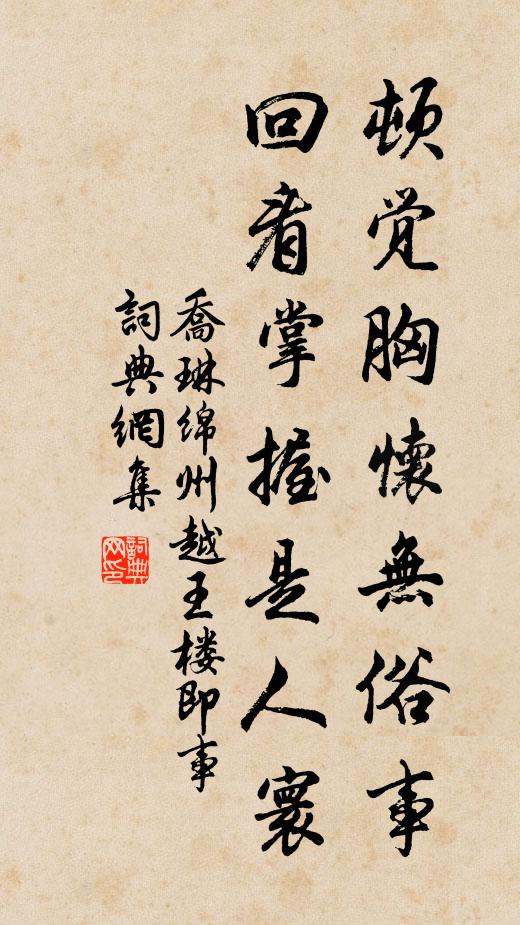 頓觉胸懷無俗事
回看掌握是人寰
喬琳绵州越王楼即事
詞典網集
詞典网印